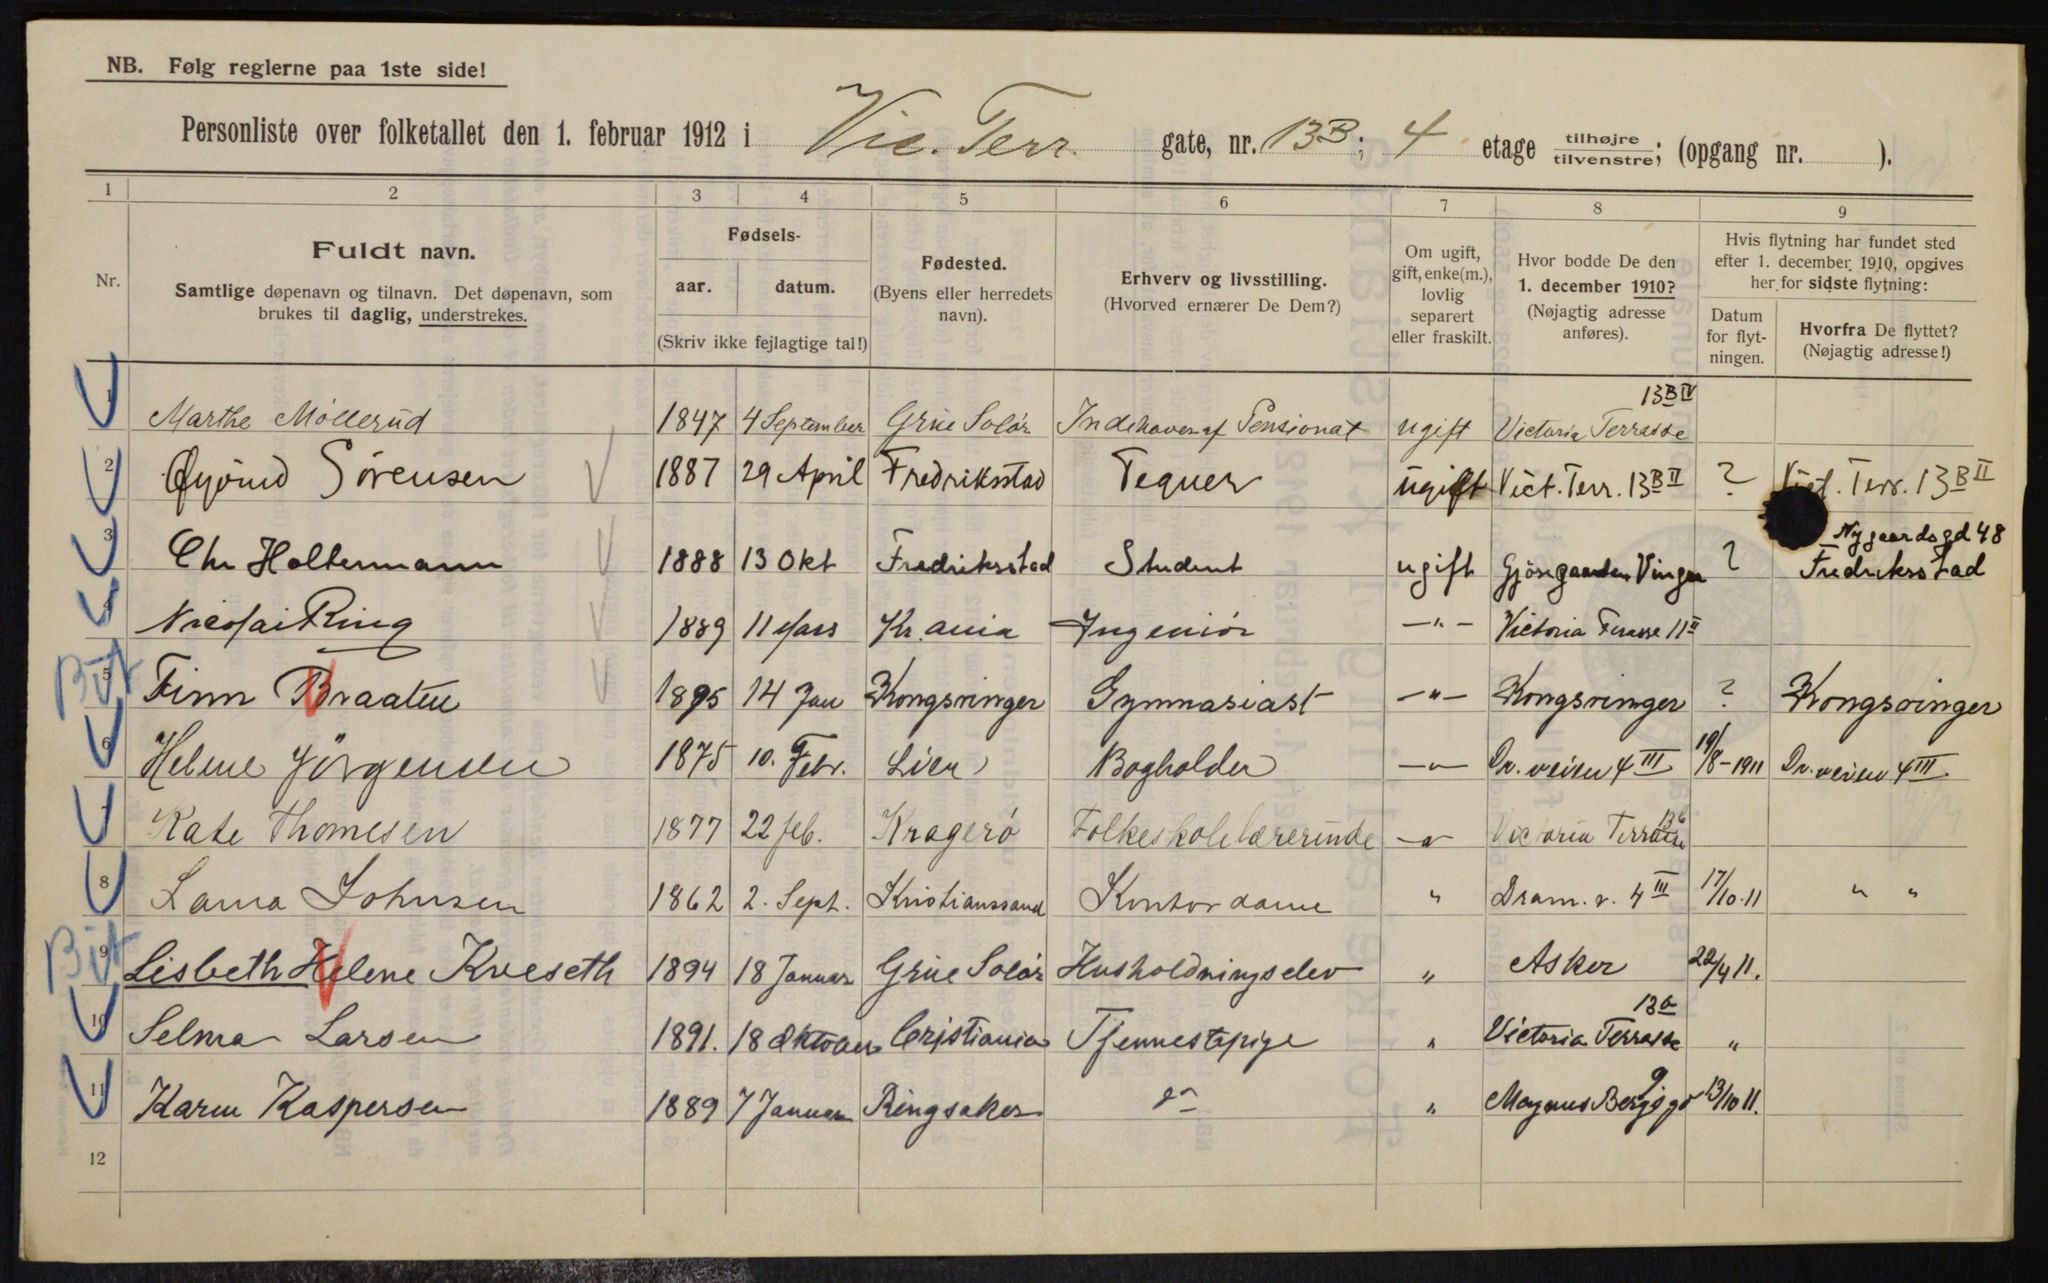 NB. Følg reglerne paa 1ste side!
Personliste over folketallet den 1. februar 1912 i Vic. Terr. gate, nr. 13B; 4 etage tilhøjre tilvenstre; (opgang nr. ).
1 2 3 4 5 6 7 8 9
Nr.
Fuldt navn.
Samtlige døpenavn og tilnavn. Det døpenavn, som
brukes til daglig, understrekes.
Fødsels-
aar. datum.
(Skriv ikke fejlagtige tal!)
Fødested.
(Byens eller herredets
navn).
Erhverv og livsstilling.
(Hvorved ernærer De Dem?)
Om ugift,
gift, enke(m.),
lovlig
separert
eller fraskilt.
Hvor bodde De den
1. december 1910?
(Nøjagtig adresse
anføres).
Hvis flytning har fundet sted
efter 1. december 1910, opgives
her for sidste flytning:
Datum
for flyt-
ningen.
Hvorfra De flyttet?
(Nøjagtig adresse!)
1 Marthe Möllerud 1847 4 September Grue Solör Indehaver af Pensionat ugift Victoria Terrasse 13B IV
2 Øyvind Sörensen 1887 29 April Fredriksstad Tegner ugift Vict. Terr. 13B II ? Vict. Terr. 13B II
3 Chr Holtermann 1888 13 Okt Fredriksstad Student ugift Gjösegaarden Vinger ? Nygaardsgd 48
Fredriksstad
4 Nicolai Ring 1889 11 Mars Kr.ania Ingeniör —"— Victoria Terasse 11 II
Bit
5 Finn Braaten 1895 14 Jan Kongsvinger Gymnasiast —"— Kongsvinger ? Kongsvinger
6 Helene Jörgensen 1875 10. Febr. Lier Bogholder —"— Dr. veien 4 III 19/8-1911 Dr. veien 4 III
7 Kate Thomesen 1877 22 feb. Kragerö Folkeskolelærerinde —"— Victoria Terrasse 13b
8 Laura Johnsen 1862 2. Sept. Kristianssand Kontordame " Dram. v. 4 III 17/10.11 " "
Bit
9 Lisbeth Helene Kveseth 1894 18 Januar Grue Solör Husholdningselev " Asker 22/4 11.
10 Selma Larsen 1891. 18 Oktober Cristiania Tjennestepige " Victoria Terrasse 13b "
11 Karen Kaspersen 1889 7 Januar Ringsaker do " Magnus Bergsgd 9 13/10 11.
12